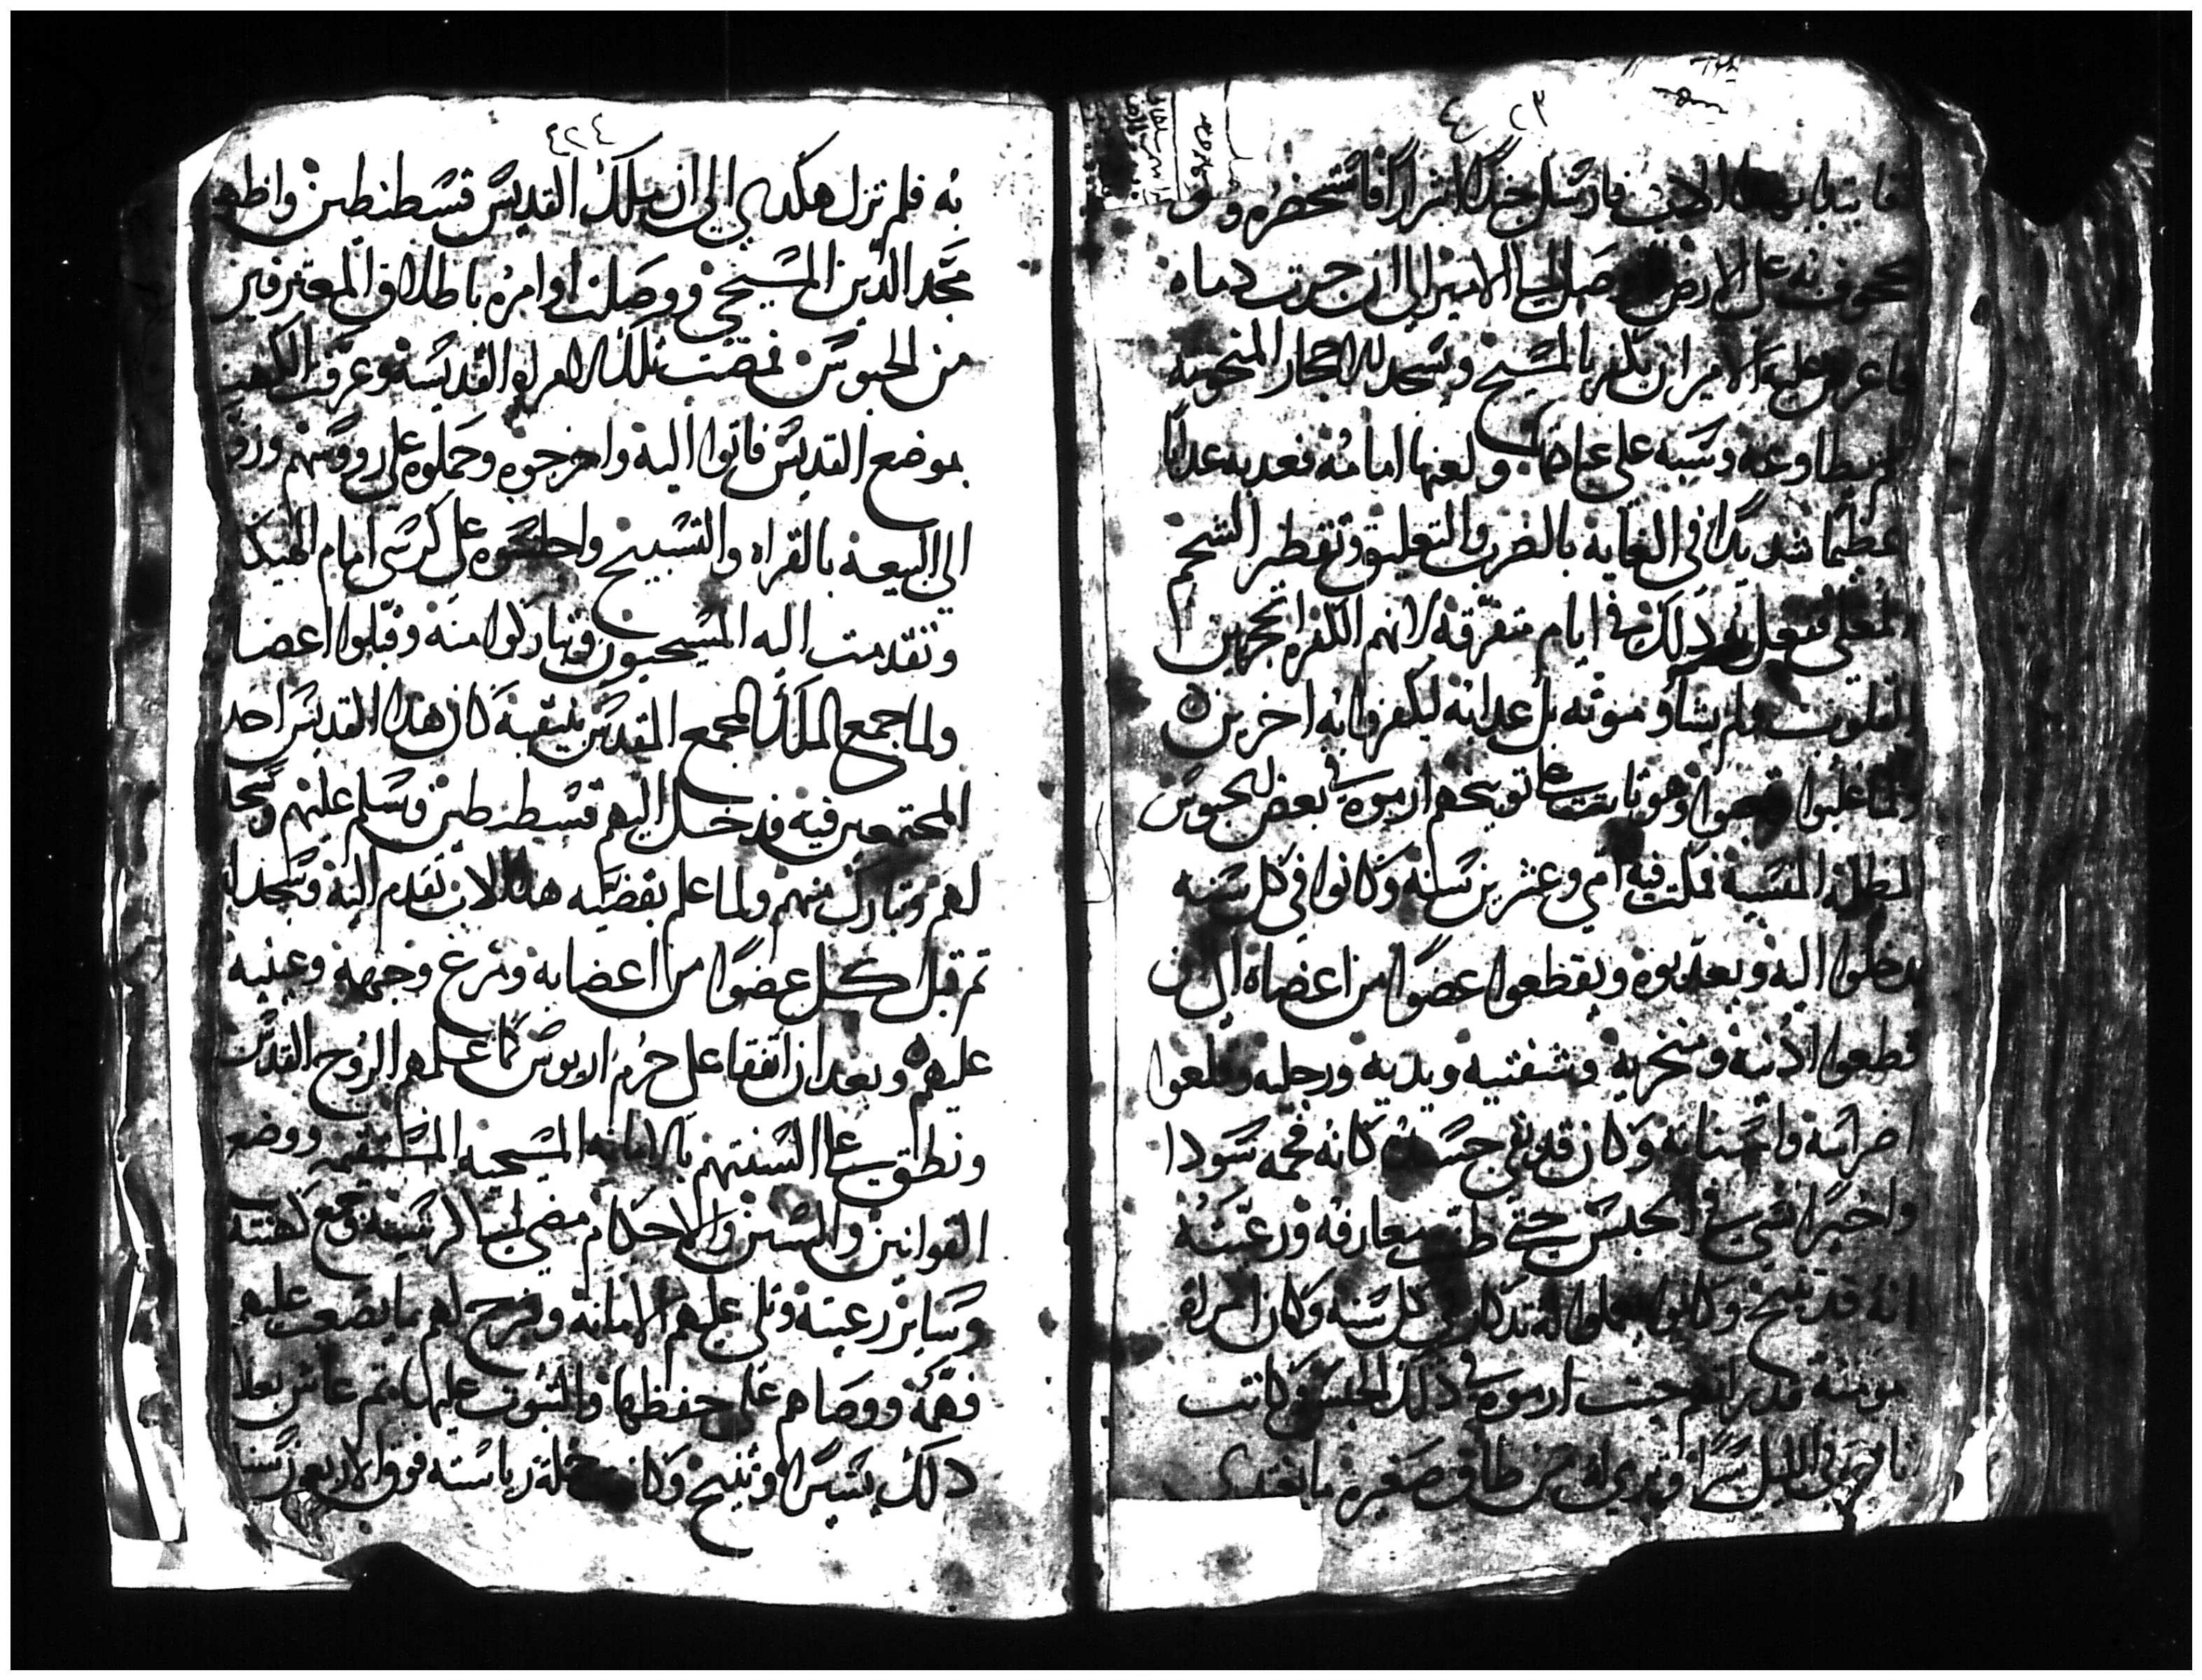 ٤٢٣
فارسل جندا اشرارا فاستحضروه
علي الارض الي الامير الي ان جرت دماه
عليه الامير ان يكفر بالمسيح ويسجد للاحجار المنحوته
فلم يطاوعه وسبه علي عبادتها ولعنها امامه فعدبه عدابا
عظيما شديدا في الغايه بالضرب والتعليق وتقطير الشحم
المغلي دلك في ايام متفرقه لانهم الكفره المتحجرين
القلوب لم يشاو موته بل عدابه ليكفر وانه اخرين
وهو ثابت علي توبيخهم ارموه في بعض الحبوس
المظلمه فمكث فيه اتني وعشرين سنه وكانوا في كل سنه
يدخلوا اليه ويعدبوه ويقطعوا عضوا من اعضاه الي ان
قطعوا ادنيه ومنخريه وشفتيه ويديه ورجليه وقلعوا
اضراسه واسنانه وكان قد بقي جسده كانه فحمه سودا
واخيرا نسي في الحبس حتي ظنت معارفه ورعيته
انه قد تنيح وكانوا يعملوا له تدكار في كل سنه وكان امراه
مومنه قد راتهم حيت ارموه في دلك الحبس وكانت
في الليل سرا وترمي له من طاق صغيره ما يغتدي
٤٢٤
به فلم تزل هكدي الي ان ملك القديس قسطنطين واظهر
مجد الدين المسيحي ووصلت اوامره باطلاق المعترفين
من الحبوس فمضت تلك الامراه القديسه وعرفت الكهنه
بموضع القديس فاتوا اليه واخرجوه وحملوه علي رووسهم وزفوه
الي البيعه بالقراه والتسبيح واجلسوه علي كرسي امام الهيكل
وتقدمت اليه المسيحيون وتباركوا منه وقبلوا اعضا
ولما جمع الملك المجمع المقدس بنيقيه كان هدا القديس احد
المجتمعين فيه فدخل اليهم قسطنطين وسلم عليهم وسجد
لهم وتبارك منهم ولما علم بقضيه هدا الاب تقدم اليه وسجد له
تم قبل كل عضوا من اعضايه ومرغ وجهه وعينيه
عليهم وبعد ان اتفقا علي حرم اريوس كما علمهم الروح القدس
ونطق علي السنتهم بالامانه المسيحيه المستقيمه ووضع
القوانين والسنن والاحكام مضي الي كرسيه وجمع كهنته
وساير رعيته وتلي عليهم الامانه وشرح لهم ما يصعب عليهم
فهمه ووصاهم علي حفظها والثبوت عليها تم عاش بعد
دلك يسيرا وتنيح وكانت جمله رياسته فوق الاربعون سنه